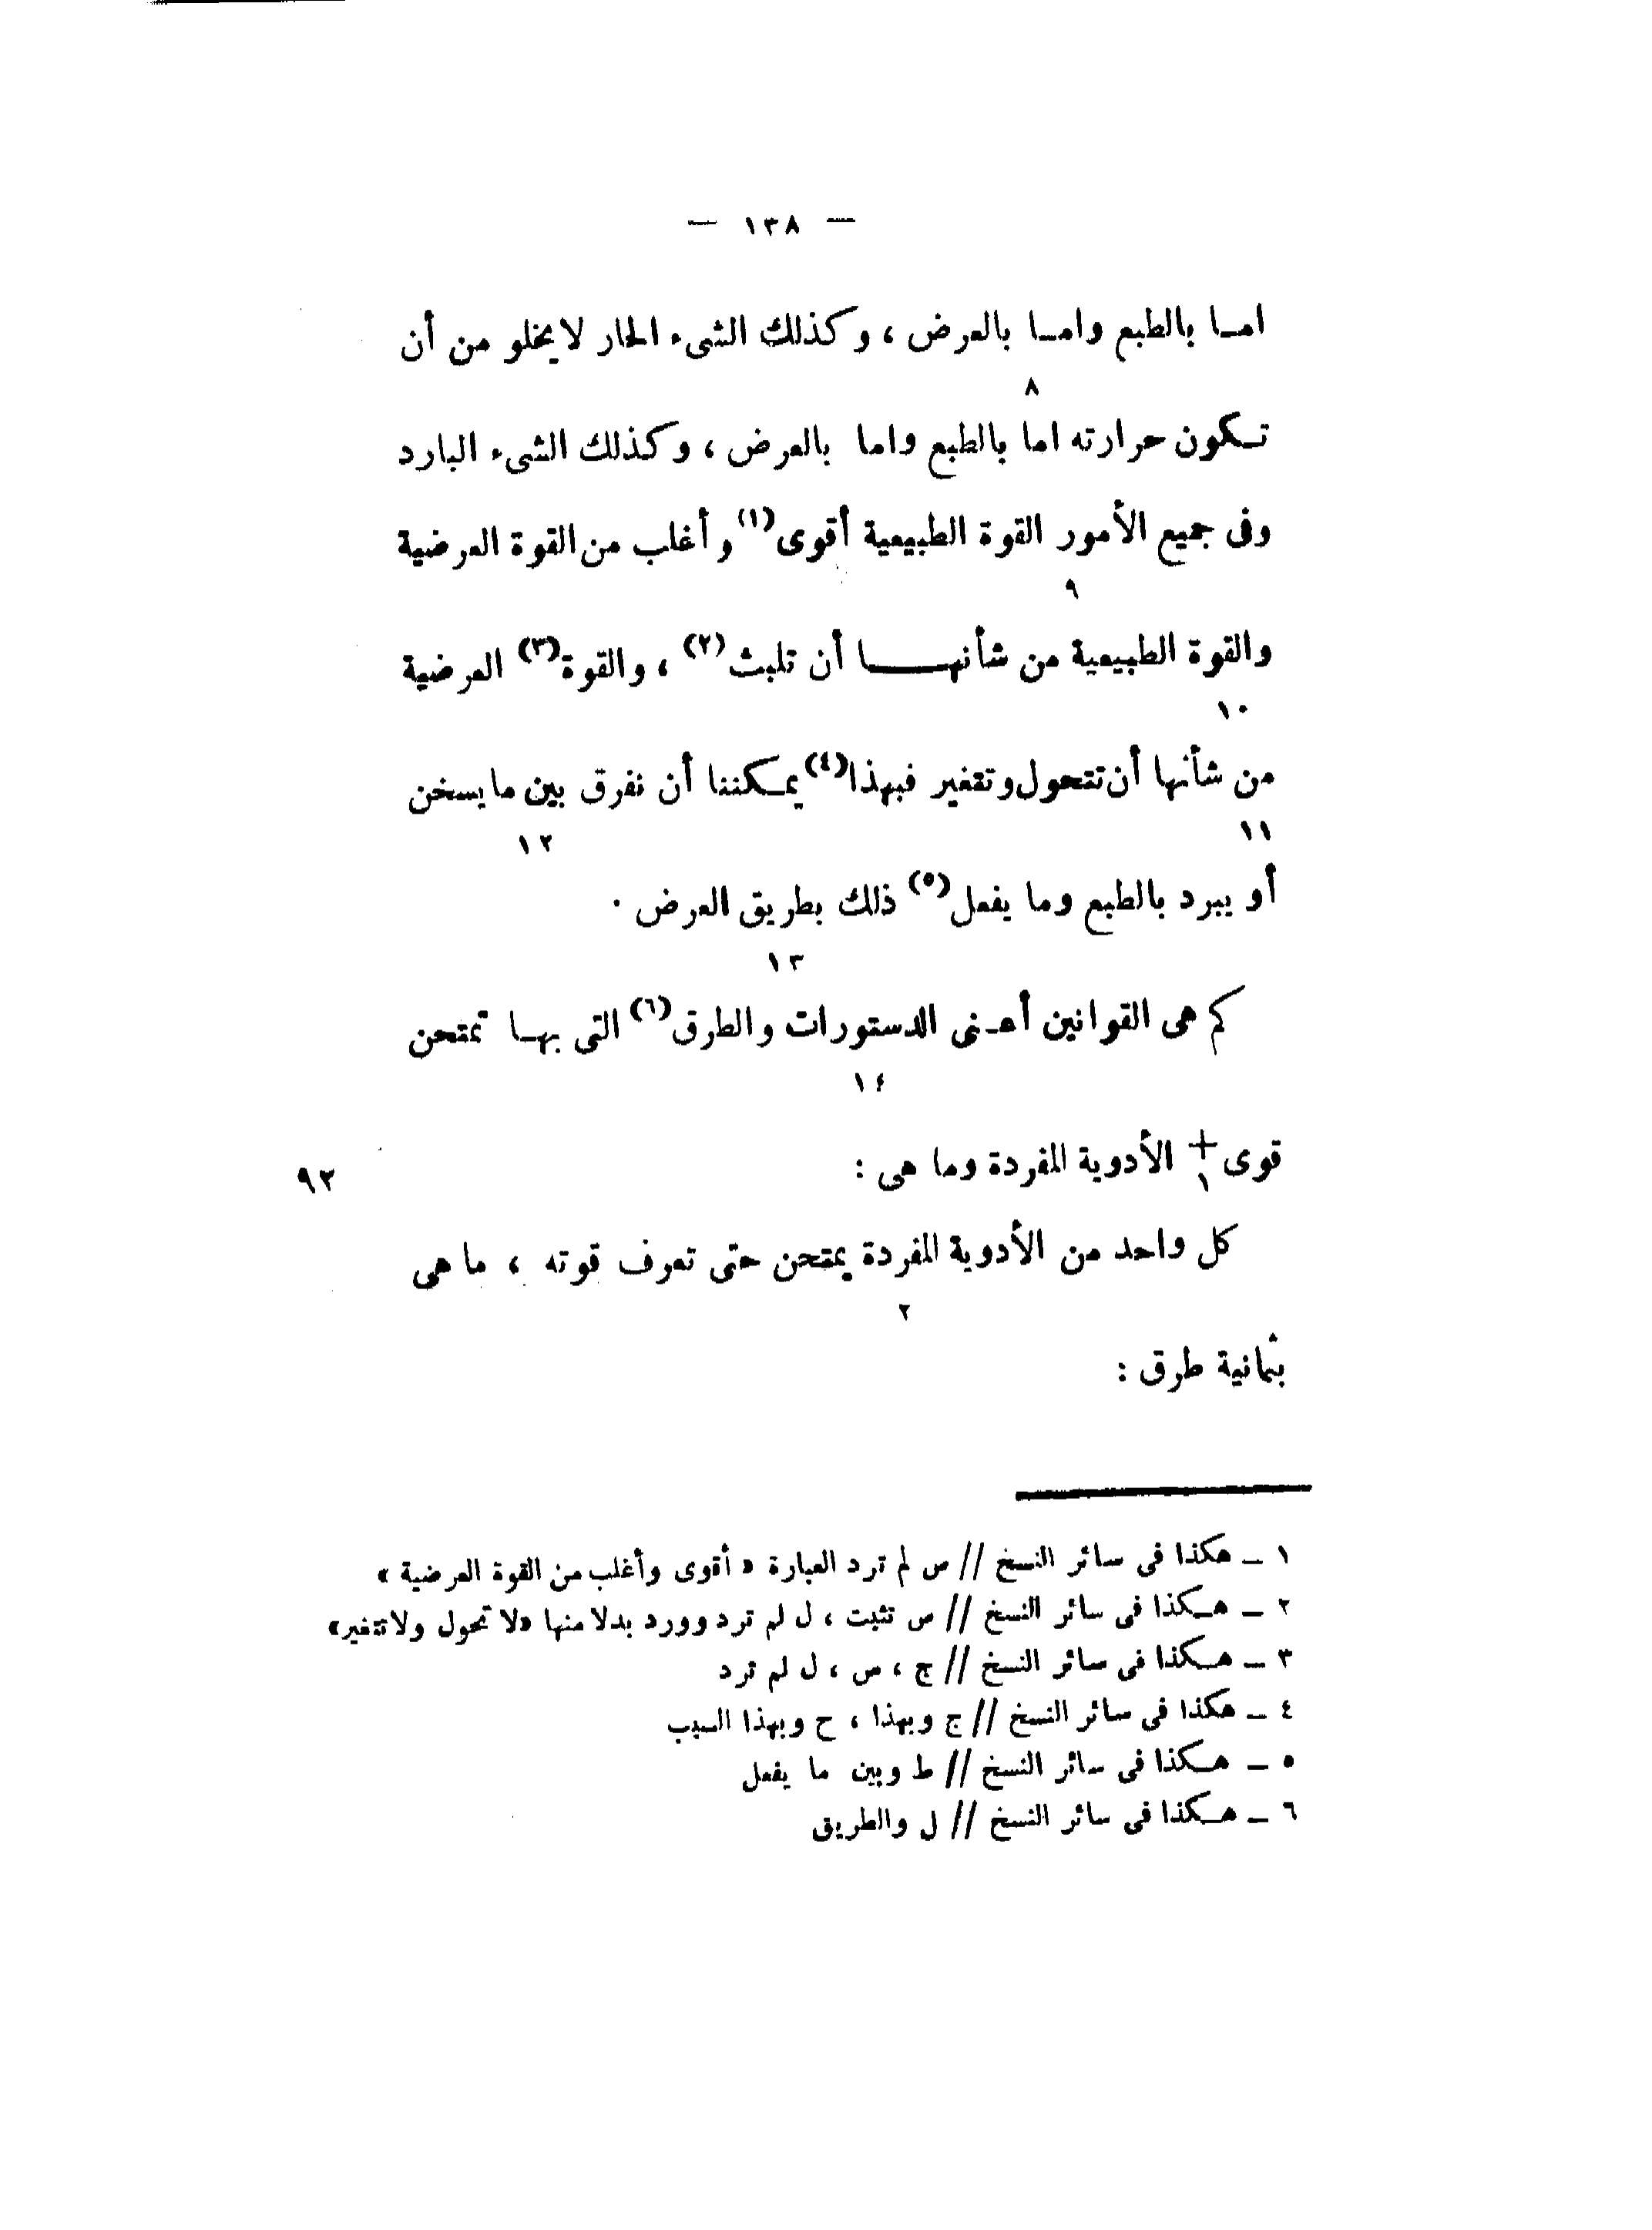 — ١٣٨ —
امـا بالطبع وامـا بالعرض ، وكذلك الشىء الحار لايخلو من أن
٨
تـكون حرارته اما بالطبع واما بالعرض ، وكذلك الشىء البارد
وفى جميع الأمور القوة الطبيعية أقوى(١) وأغلب من القوة العرضية
٩
والقوة الطبيعية من شأنهـــا أن تلبث(٢) ، والقوة(٣) العرضية
١٠
من شأنها أن تتحول وتتغير فبهذا(٤) يمـكننا أن نفرق بين مايسخن
١١ ١٢
أو يبرد بالطبع وما يفعل(٥) ذلك بطريق العرض .
١٣
كم هى القوانين أعـنى الدستورات والطرق(٦) التى بهـا تمتحن
١٤
قوى + الأدوية المفردة وما هى : ٩٢
١
كل واحد من الأدوية المفردة يمتحن حتى تعرف قوته ، ماهى
٢
بثمانية طرق :
١ ـ هكذا فى سائر النسخ // س لم ترد العبارة « أقوى وأغلب من القوة العرضية »
٢ ـ هـكذا فى سائر النسخ // س تثبت ، ل لم ترد وورد بدلا منها «لا تحول ولا تتغير»
٣ ـ هـكذا فى سائر النسخ // ج ، س ، ل لم ترد
٤ ـ هكذا فى سائر النسخ // ج وبهذا ، ح وبهذا السبب
٥ ـ هـكذا فى سائر النسخ // ط وبين ما يفعل
٦ ـ هـكذا فى سائر النسخ // ل والطريق